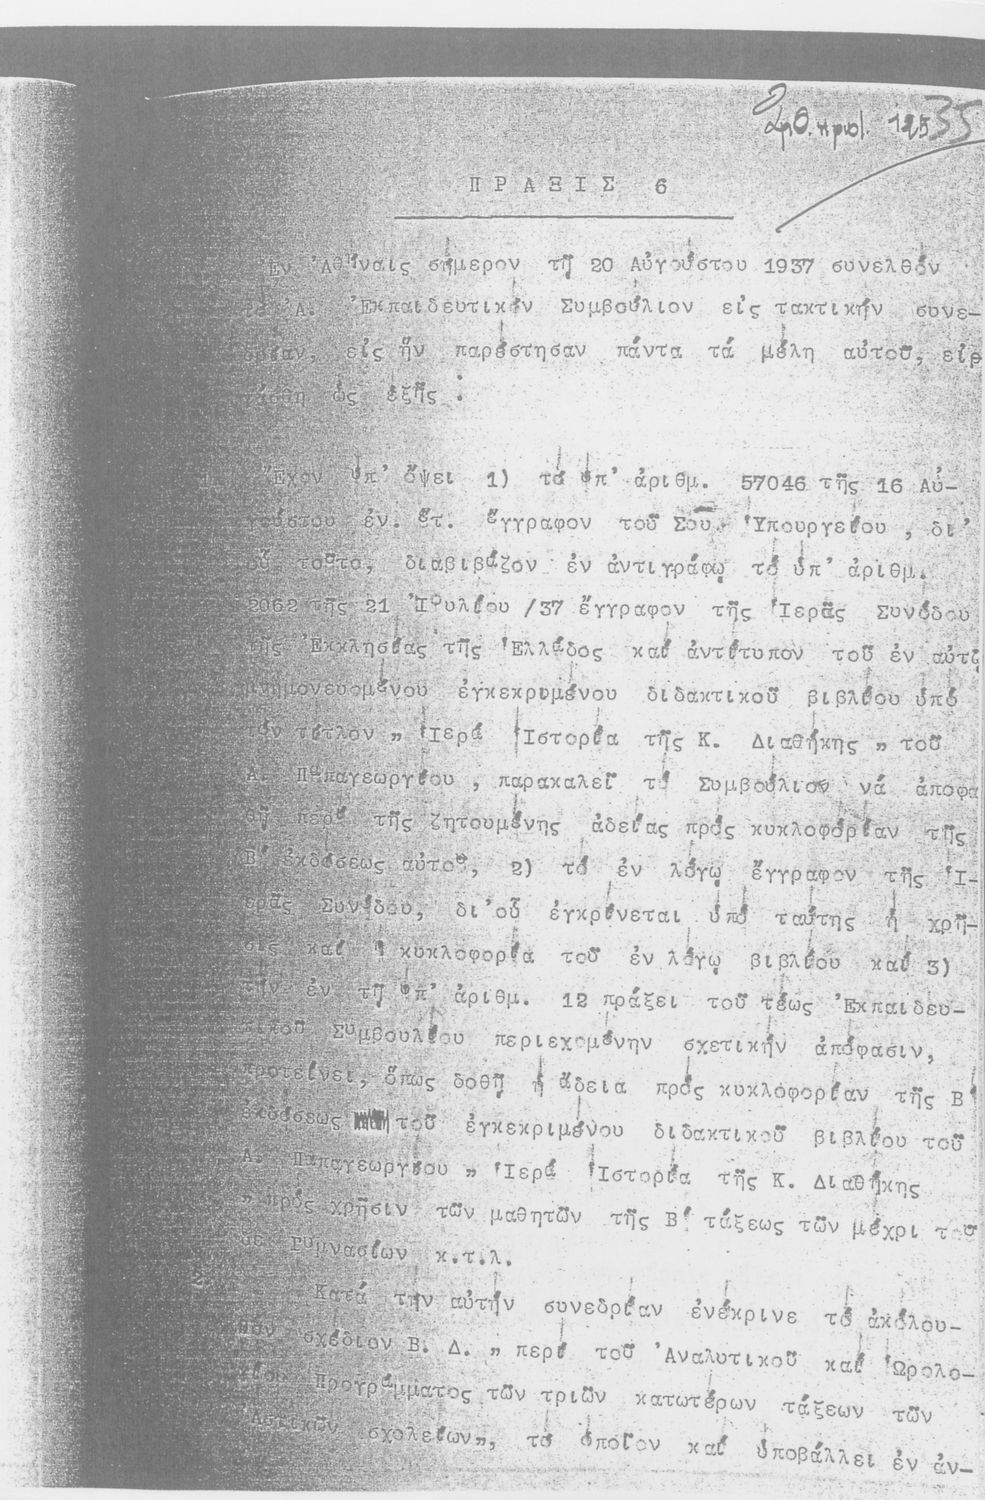 Ἀριθ. πρωτ. 125 35
ΠΡΑΞΙΣ 6
Ἐν Ἀθήναις σήμερον τῇ 20 Αὐγούστου 1937 συνελθόν
Ἀ. Ἐκπαιδευτικόν Συμβούλιον εἰς τακτικήν συνε-
δρίαν, εἰς ἥν παρέστησαν πάντα τά μέλη αὐτοῦ,
ὡς ἑξῆς :
Ἔχον ὑπ' ὄψει 1) τό ὑπ' ἀριθμ. 57046 τῆς 16 Αὐ-
γούστου ἐν. ἔτ. ἔγγραφον τοῦ Σοῦ Ὑπουργείου , δι'
οὗ τοῦτο, διαβιβάζον ἐν ἀντιγράφῳ τό ὑπ' ἀριθμ.
2062 τῆς 21 Ἰουλίου /37 ἔγγραφον τῆς Ἱερᾶς Συνόδου
τῆς Ἐκκλησίας τῆς Ἑλλάδος καί ἀντίτυπον τοῦ ἐν αὐτῷ
μνημονευομένου ἐγκεκριμένου διδακτικοῦ βιβλίου ὑπό
τόν τίτλον „ Ἱερά Ἱστορία τῆς Κ. Διαθήκης „ τοῦ
Α. Παπαγεωργίου , παρακαλεῖ τό Συμβούλιον νά ἀποφα
θῇ περί τῆς ζητουμένης ἀδείας πρός κυκλοφορίαν τῆς
Β΄ ἐκδόσεως αὐτοῦ, 2) τό ἐν λόγῳ ἔγγραφον τῆς Ἱ-
ερᾶς Συνόδου, δι'οὗ ἐγκρίνεται ὑπό ταύτης ἡ χρῆ-
σις καί ἡ κυκλοφορία τοῦ ἐν λόγῳ βιβλίου καί 3)
τήν ἐν τῇ ὑπ' ἀριθμ. 12 πράξει τοῦ τέως Ἐκπαιδευ-
τικοῦ Συμβουλίου περιεχομένην σχετικήν ἀπόφασιν,
προτείνει, ὅπως δοθῇ ἡ ἄδεια πρός κυκλοφορίαν τῆς Β΄
ἐκδόσεως τοῦ ἐγκεκριμένου διδακτικοῦ βιβλίου τοῦ
Α. Παπαγεωργίου „ Ἱερά Ἱστορία τῆς Κ. Διαθήκης
„ πρός χρῆσιν τῶν μαθητῶν τῆς Β΄ τάξεως τῶν μέχρι τοῦδε
Γυμνασίων κ.τ.λ.
2
Κατά τήν αὐτήν συνεδρίαν ἐνέκρινε τό ἀκόλου-
θον σχέδιον Β. Δ. „ περί τοῦ Ἀναλυτικοῦ καί Ὡρολο-
γίου Προγράμματος τῶν τριῶν κατωτέρων τάξεων τῶν
Ἀστικῶν σχολείων„, τό ὁποῖον καί ὑποβάλλει ἐν ἀν-